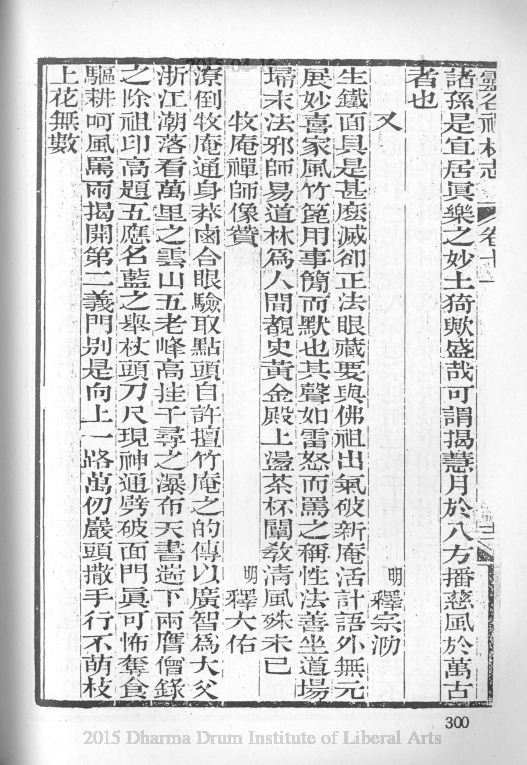 靈谷禪林志 卷十一
諸孫是宜居眞樂之妙土猗歟盛哉可謂揭慧月於八方播慈風於萬古
者也
又
明 釋宗泐
生鐵面具是甚麼滅卻正法眼藏要與佛祖出氣破新庵活計語外無元
展妙喜家風竹篦用事簡而默也其聲如雷怒而罵之稱性法善坐道場
埽末法邪師易道林爲人間覩史黃金殿上盪茶杯闡教淸風殊未已
牧庵禪師像贊
明 釋大佑
潦倒牧庵通身莽鹵合眼驗取點頭自許擅竹庵之的傳以廣智爲大父
浙江潮落看萬里之雲山五老峰高挂千尋之瀑布天書遙下兩膺僧錄
之除祖印高題五應名藍之舉杖頭刀尺現神通劈破面門眞可怖奪食
驅耕呵風罵雨揭開第二義門別是向上一路萬仞巖頭撒手行不萌枝
上花無數
300
2015 Dharma Drum Institute of Liberal Arts